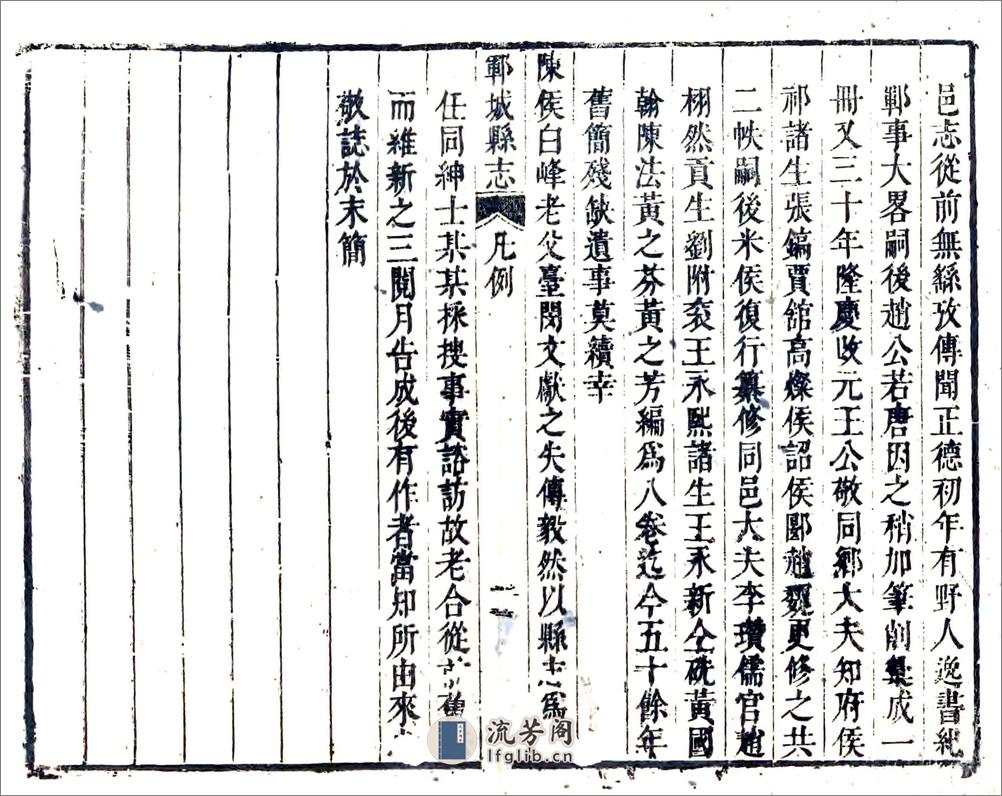 邑志從前無繇攷傳聞正德初年有野人逸書紀
鄆事大畧嗣後趙公若唐因之稍加筆削集成一
冊又三十年隆慶改元王公敬同鄉大夫知府侯
祁諸生張鎬賈舘高燦侯詔侯郾趙魏更修之共
二帙嗣後米侯復行纂修同邑大夫李瓚儒官趙
栩然貢生劉附袞王永熙諸生王永新仝硄黃國
翰陳法黃之芬黃之芳編爲八卷迄今五十餘年
舊簡殘缺遺事莫續幸
陳侯白峰老父臺閔文獻之失傳毅然以縣志爲
鄆城縣志 凡例 二
任同紳士某某採搜事實諮訪故老合從前舊
而維新之三閱月告成後有作者當知所由來
敬誌於末簡
流芳阁
lfglib.cn